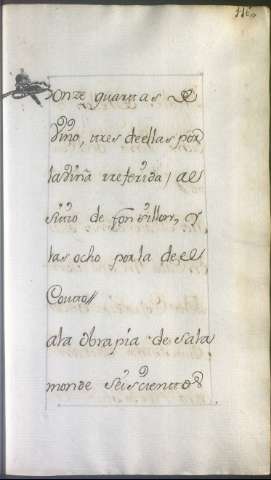 116
Onze quartas de
Vino, tres de ellas por
la viña rreferida, al
sitio de fontrillon, y
las ocho por la de el
Couto//
a la obra pia de sala
monde seiscientos